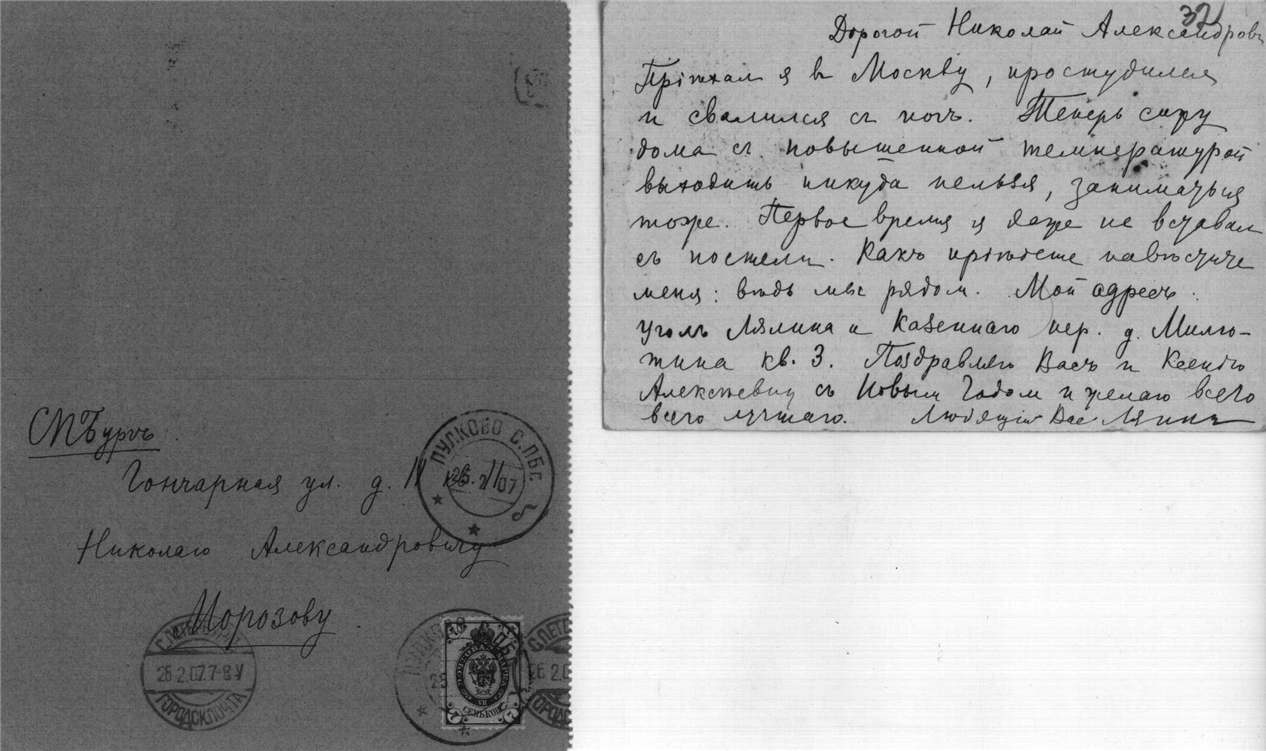 СПБургъ.
Гончарная ул. д. 11
кв.
Николаю Александровичу
Морозову
ПУЛКОВО С.ПБГ.
25.2 07
С.ПЕТЕРБУРГЪ
26.2.07.7-8 V
ГОРОДСК.ПОЧТА
ПУЛКОВО С.ПБГ.
СЕМЬ КОП.
7 7
С.ПЕТЕ
26 2.0
ГОРОДСК
32
Дорогой Николай Александров
Пріѣхал я в Москву, простудился
и свалился съ ногъ. Теперь сижу
дома съ повышенной температурой
выходить никуда нельзя, заниматься
тоже. Первое время я даже не вставал
съ постели. Какъ пріѣдете навѣстите
меня: вѣдь мы рядом. Мой адресъ:
уголъ Лялина и Казеннаго пер. д. Милю-
тина кв. 3. Поздравляю Васъ и Ксенію
Алексѣевну съ Новым Годом и желаю всего
всего лучшаго. Любящій Вас